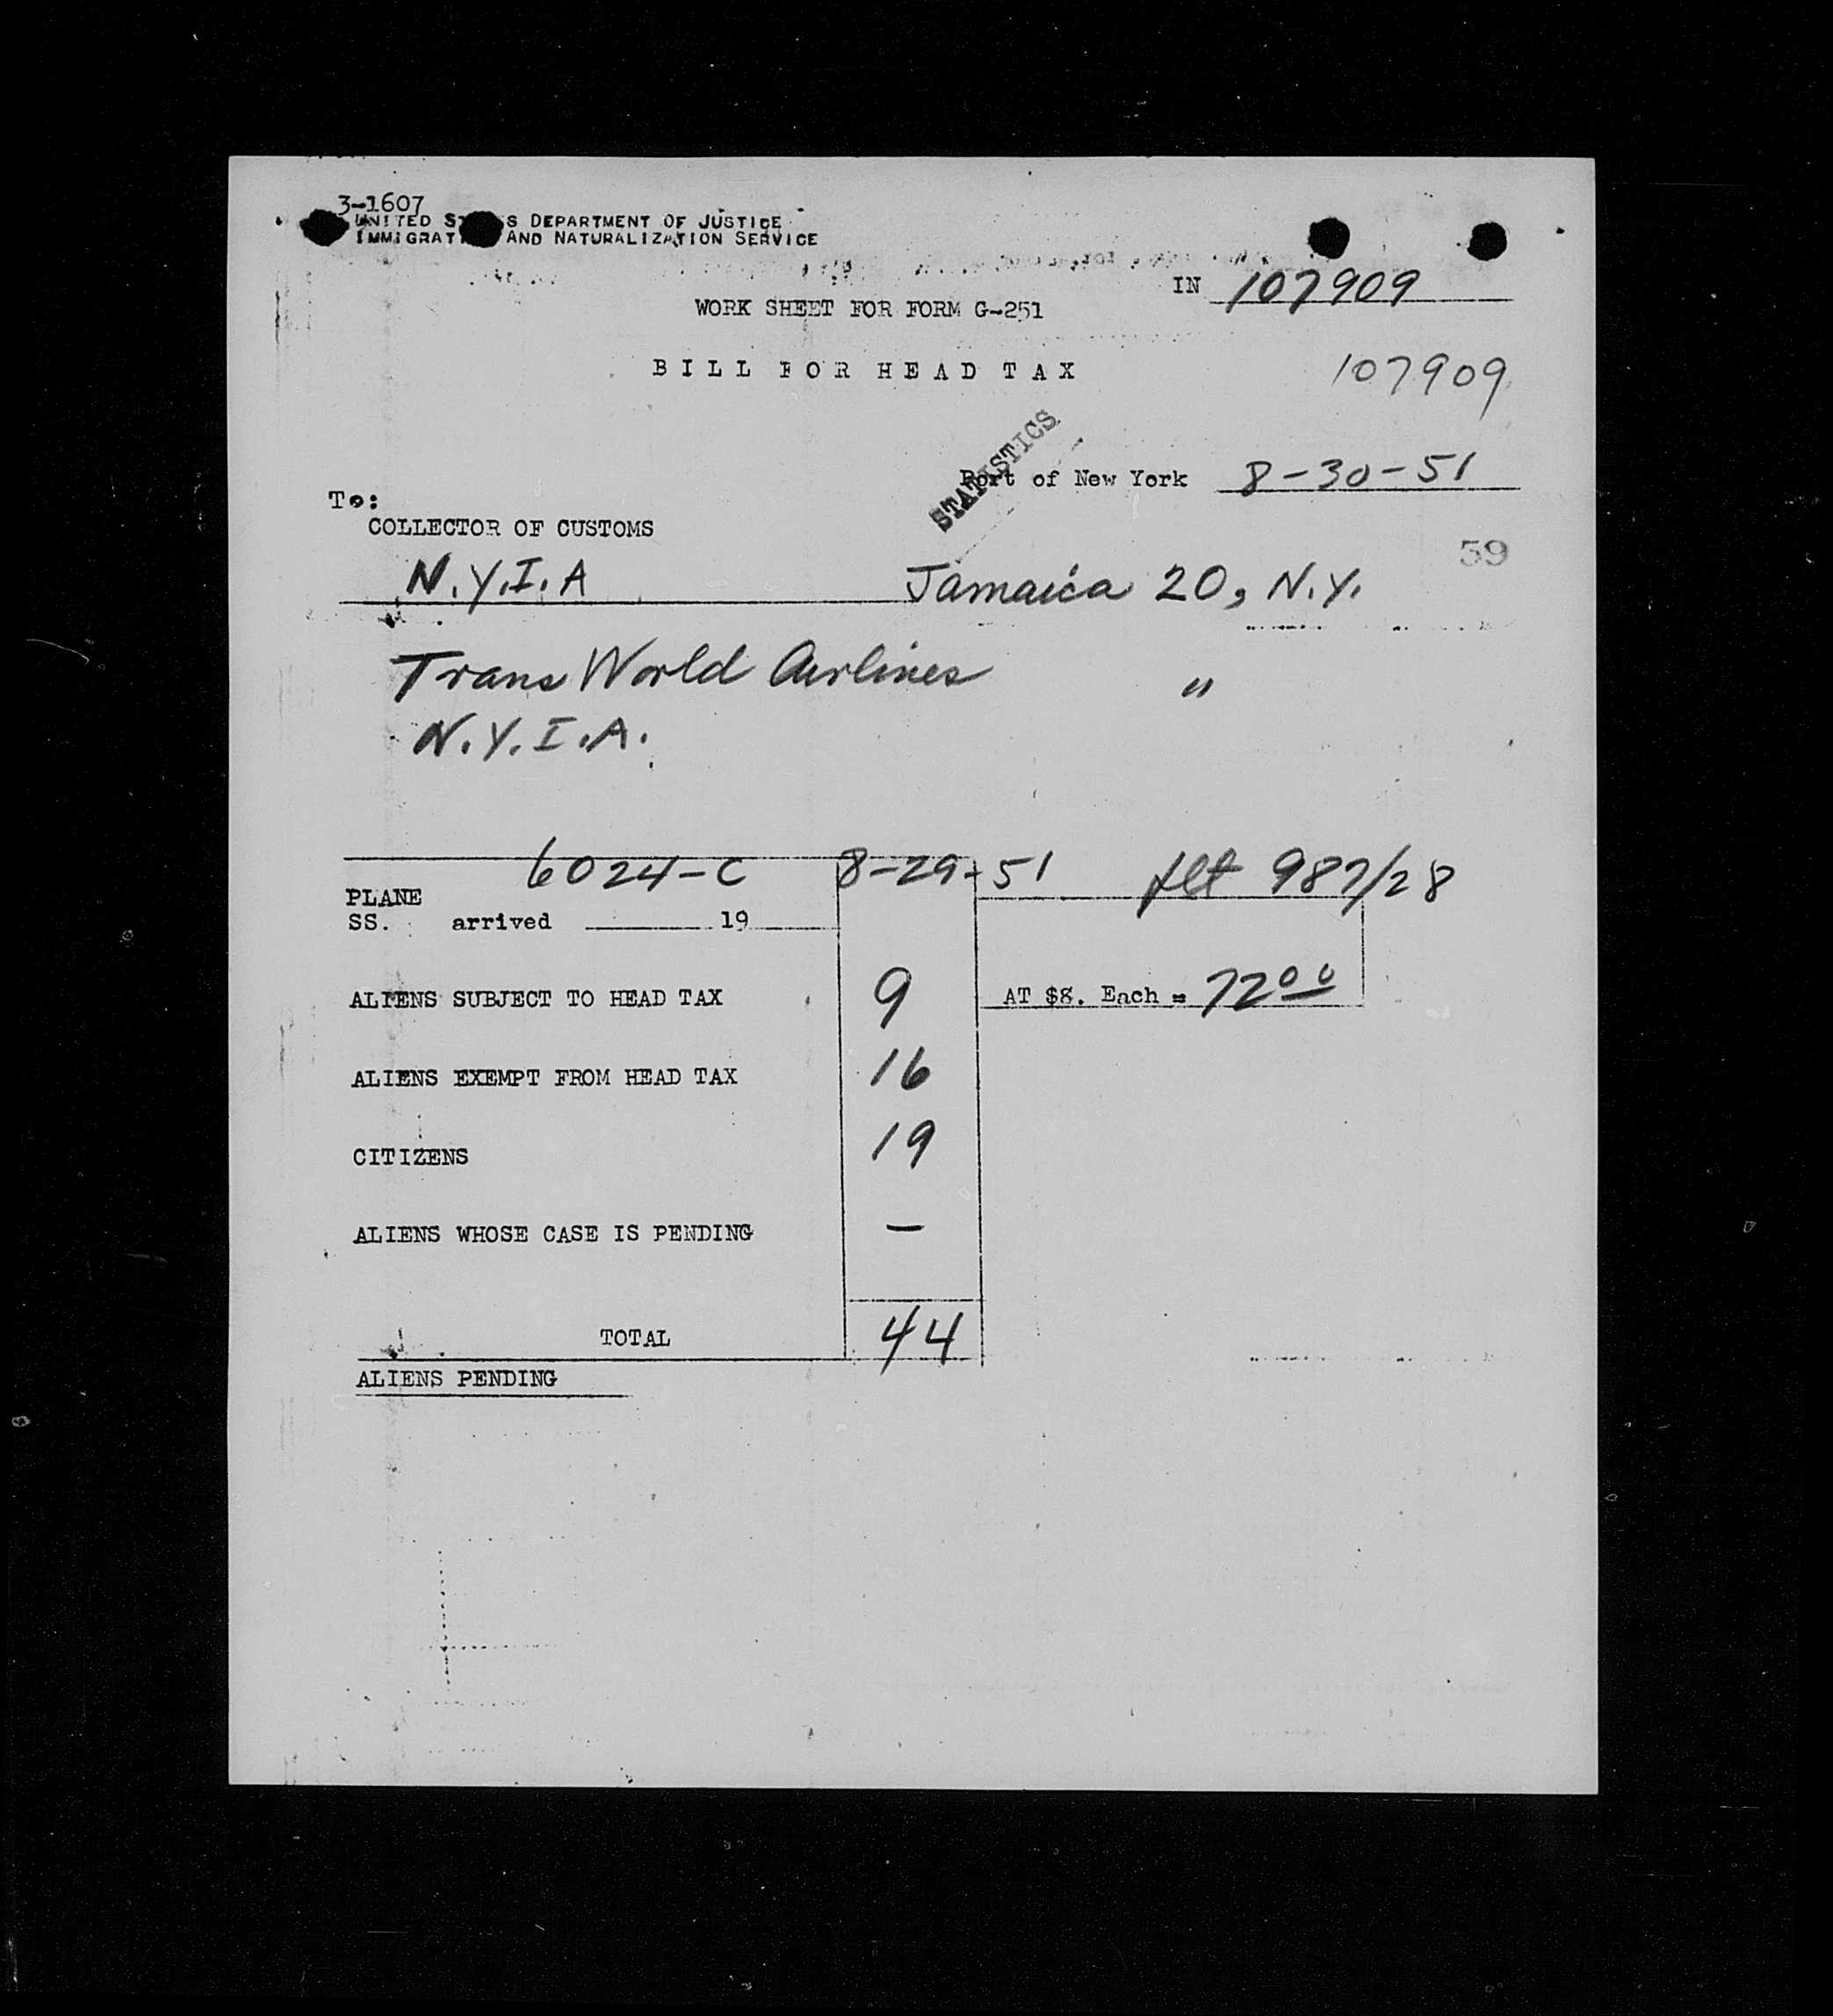 3-1607
UNITED S S DEPARTMENT OF JUSTICE
IMMIGRAT AND NATURALIZATION SERVICE
IN 107909
WORK SHEET FOR FORM G-251
BILL FOR HEAD TAX
107909
STATISTICS
Port of New York 8-30-51
To:
COLLECTOR OF CUSTOMS
59
N.Y.I.A Jamaica 20, N.Y.
Trans World Airlines "
N.Y.I.A.
6024-C 8-29-51 flt 987/28
PLANE
SS. arrived 19
ALIENS SUBJECT TO HEAD TAX 9 AT $8. Each = 72 00
ALIENS EXEMPT FROM HEAD TAX 16
CITIZENS 19
ALIENS WHOSE CASE IS PENDING —
TOTAL 44
ALIENS PENDING